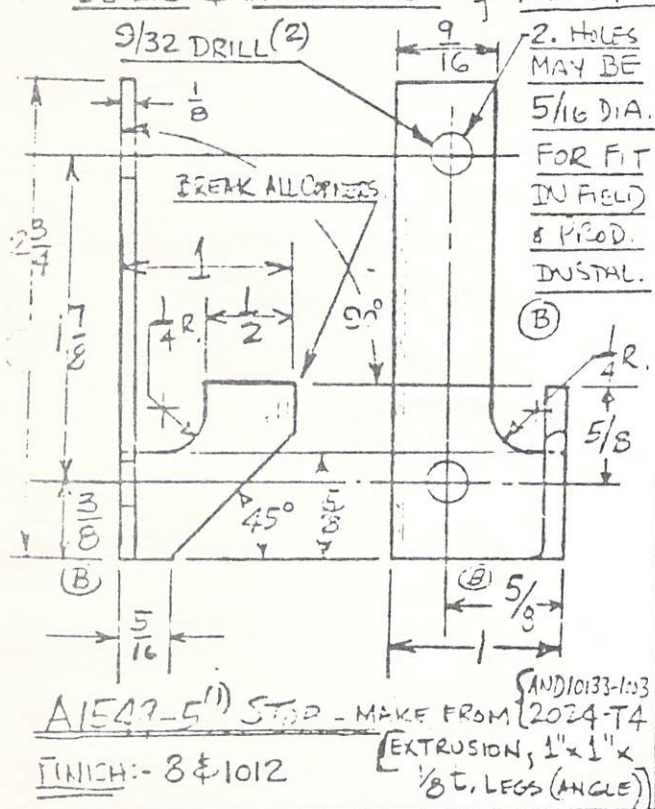 9/32 DRILL (2)
9/16
2. HOLES
MAY BE
5/16 DIA.
FOR FIT
IN FIELD
& PROD.
INSTAL.
B
1/8
BREAK ALL CORNERS
2 3/4
1 7/8
1
1/2
1/4 R.
90°
1/4 R.
5/8
3/8
45°
5/8
B
B
5/8
5/16
1
A1547-5(1) STOP - MAKE FROM
2024-T4
EXTRUSION, 1" x 1" x
1/8 t. LEGS (ANGLE)
FINISH:- 8 & 1012